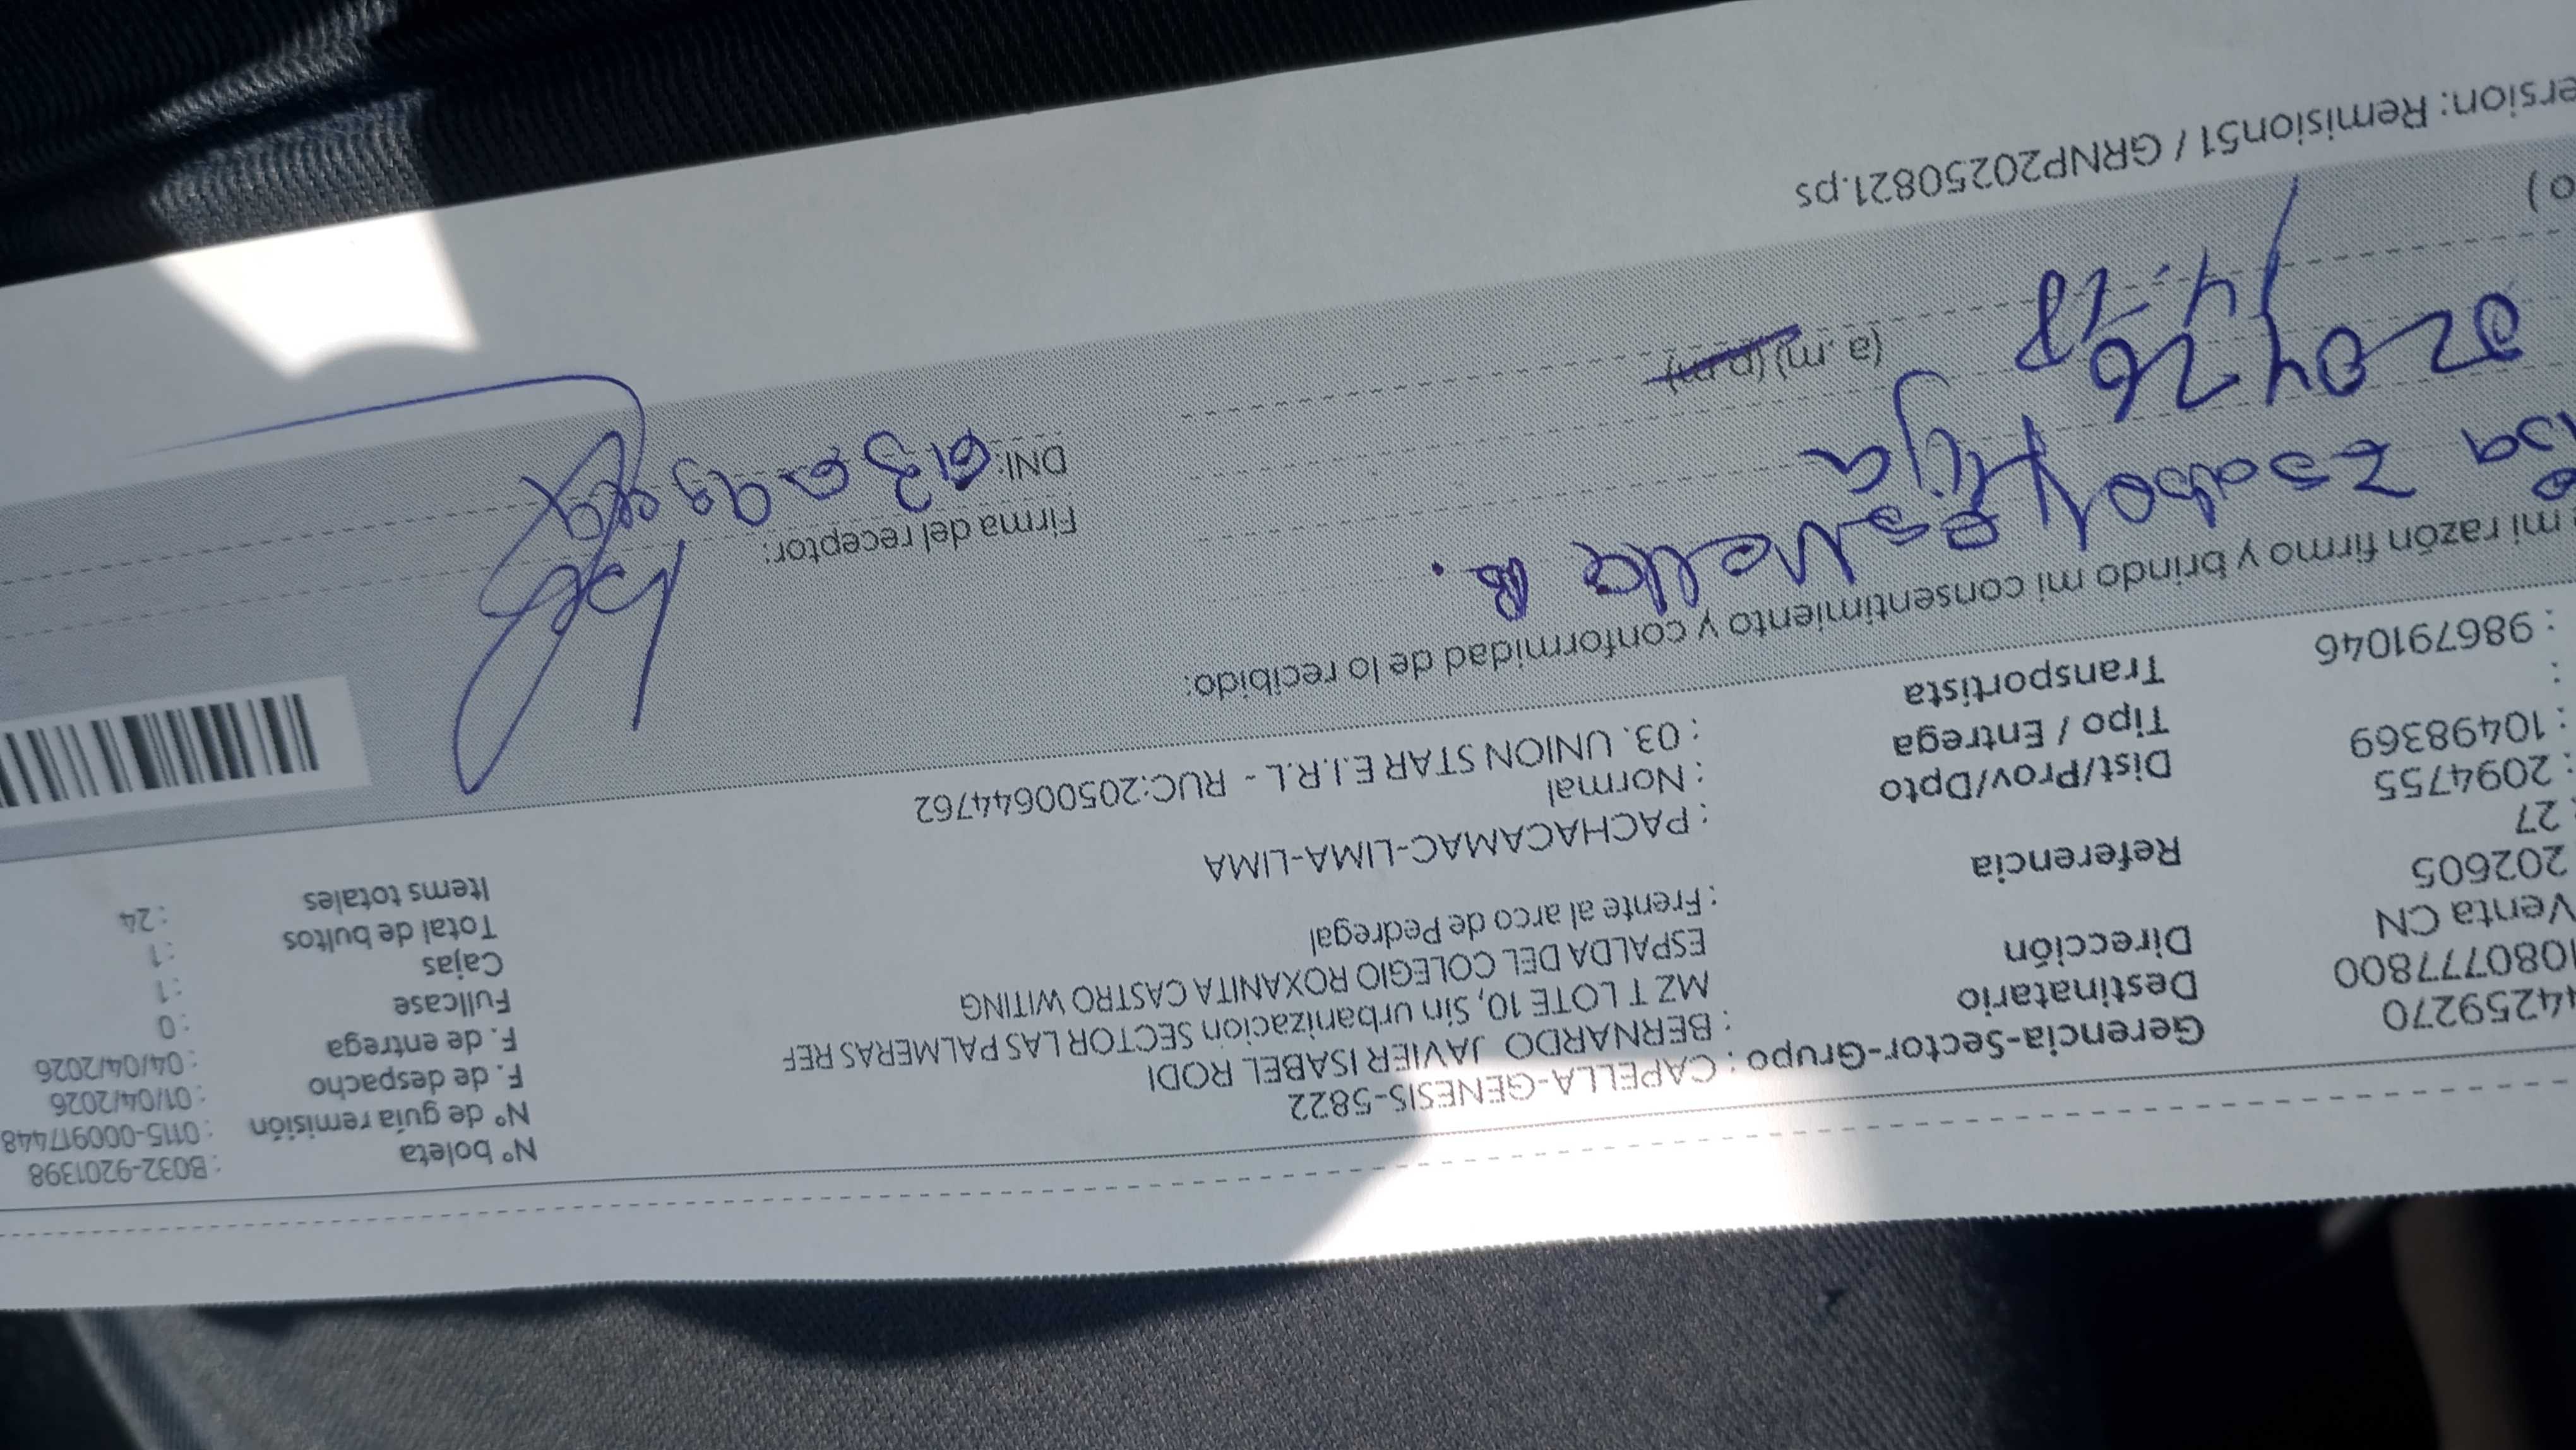 Nº boleta : B032-9201398
Nº de guía remisión : 0115-000917448
F. de despacho : 01/04/2026
F. de entrega : 04/04/2026
Fullcase : 0
Cajas : 1
Total de bultos : 1
Items totales : 24
Gerencia-Sector-Grupo : CAPELLA-GENESIS-5822
Destinatario : BERNARDO JAVIER ISABEL RODI
Dirección MZ T LOTE 10, Sin urbanización SECTOR LAS PALMERAS REF
ESPALDA DEL COLEGIO ROXANITA CASTRO WITING
Referencia : Frente al arco de Pedregal
Dist/Prov/Dpto : PACHACAMAC-LIMA-LIMA
Tipo / Entrega : Normal
Transportista : 03. UNION STAR E.I.R.L - RUC:20500644762
4259270
080777800
Venta CN
202605
27
: 2094755
: 10498369
:
: 986791046
mi razón firmo y brindo mi consentimiento y conformidad de lo recibido:
Hija
02 04 26
(a.m) (p.m)
Firma del receptor:
DNI:
o)
ersion: Remision51 / GRNP20250821.ps